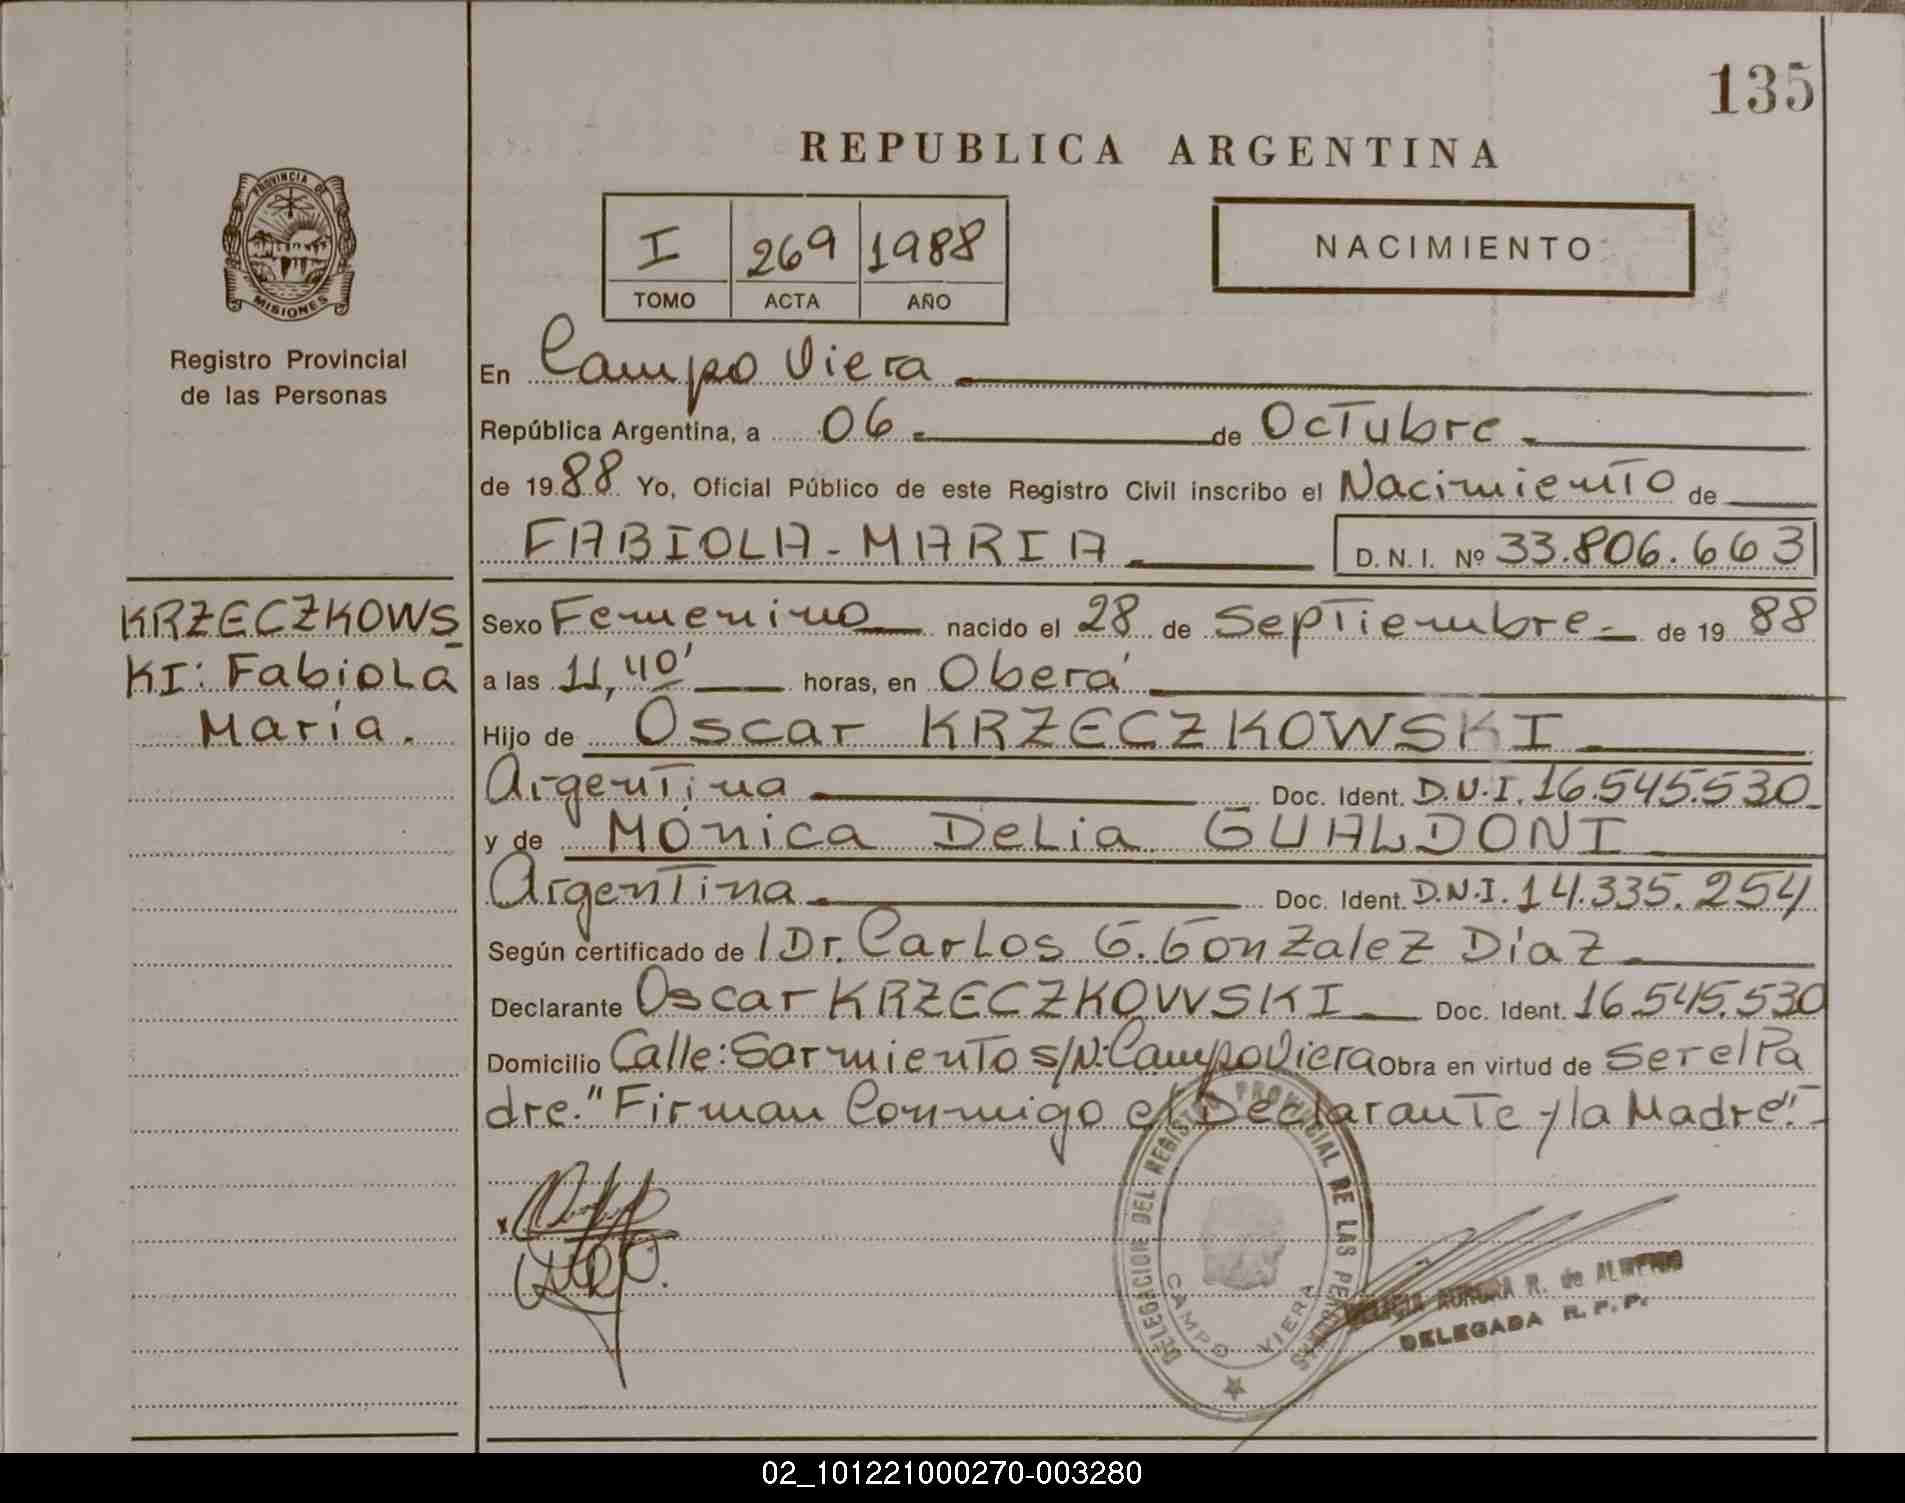 135
REPUBLICA ARGENTINA
PROVINCIA DE
MISIONES
Registro Provincial
de las Personas
I 269 1988
TOMO ACTA AÑO
NACIMIENTO
En Campo Viera
República Argentina, a 06 de Octubre
de 1988 Yo, Oficial Público de este Registro Civil inscribo el Nacimiento de
FABIOLA-MARIA D. N. I. Nº 33.806.663
KRZECZKOWS
KI: Fabiola
María.
Sexo Femenino nacido el 28 de Septiembre de 1988
a las 11,40' horas, en Oberá
Hijo de Oscar KRZECZKOWSKI
Argentina Doc. Ident. D.N.I. 16.545.530
y de Mónica Delia GUALDONI
Argentina Doc. Ident. D.N.I. 14.335.254
Según certificado de / Dr. Carlos G. Gonzalez Díaz
Declarante Oscar KRZECZKOWSKI Doc. Ident. 16.545.530
Domicilio Calle: Sarmiento s/N: Campo Viera Obra en virtud de ser el Pa
dre. "Firman Conmigo el Declarante y la Madre".-
DELEGACION DEL REGISTRO PROVINCIAL DE LAS PERSONAS
CAMPO VIERA
AURORA R. de
DELEGADA R. P. P.
02_101221000270-003280